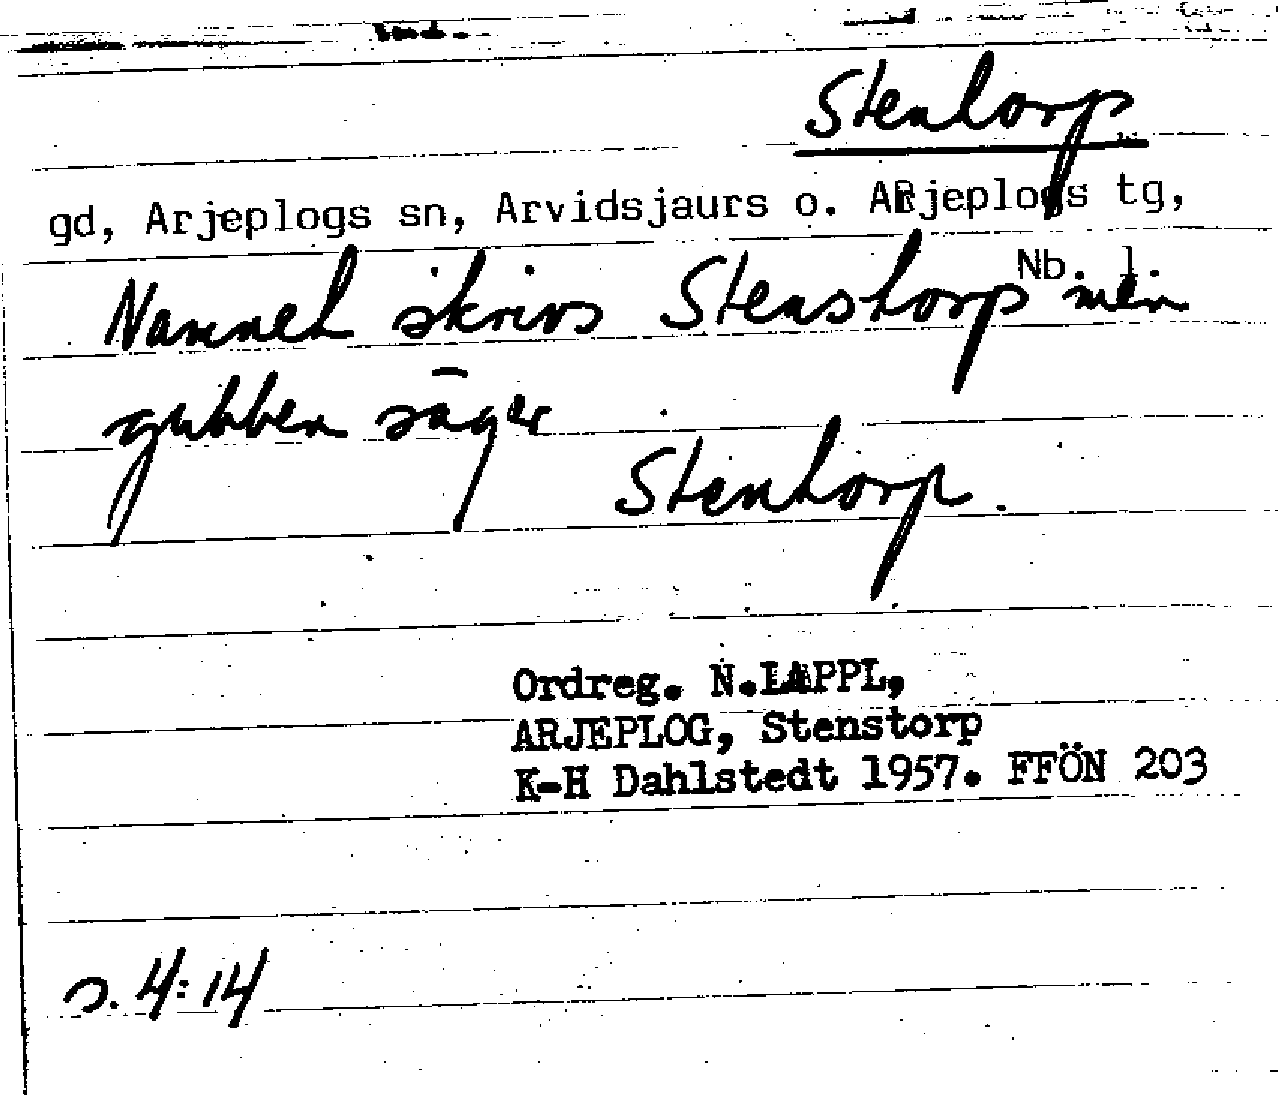 Stentorp
gd, Arjeplogs sn, Arvidsjaurs o. ARjeplogs tg,
Nb. l.
Namnet skrivs Stenstorp men
gubben säger
Stentorp.
Ordreg. N.LAPPL,
ARJEPLOG, Stenstorp
K-H Dahlstedt 1957. FFÖN 203
s. 4:14